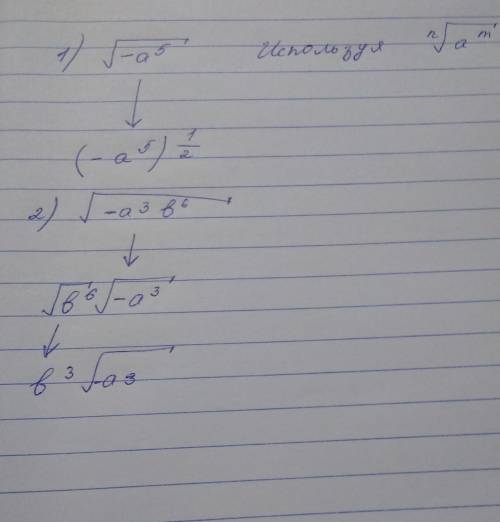 1) √-a⁵ Используя ⁿ√aᵐ
↓
(-a⁵)^1/2
2) √-a³ в⁶
↓
√в⁶ √-a³
↓
в³ √-a3